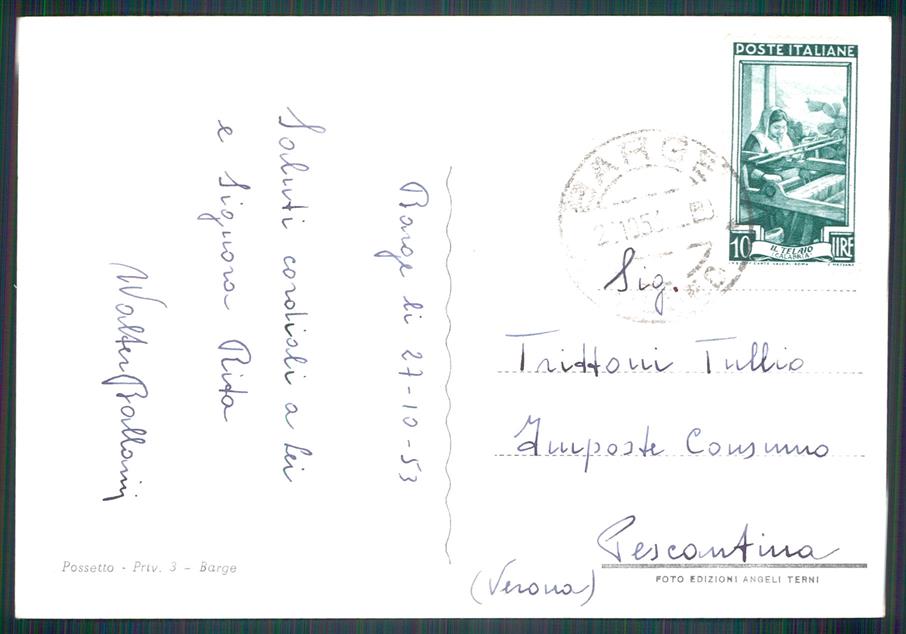 Barge li 27-10-53
Saluti cordiali a Lei
e Signora Rita
Walter Ballarini
Possetto - Priv. 3 - Barge
POSTE ITALIANE
10 LIRE
IL TELAIO
(CALABRIA)
BARGE
Sig.
Trittoni Tullio
Imposte Consumo
Pescantina
(Verona)
FOTO EDIZIONI ANGELI TERNI